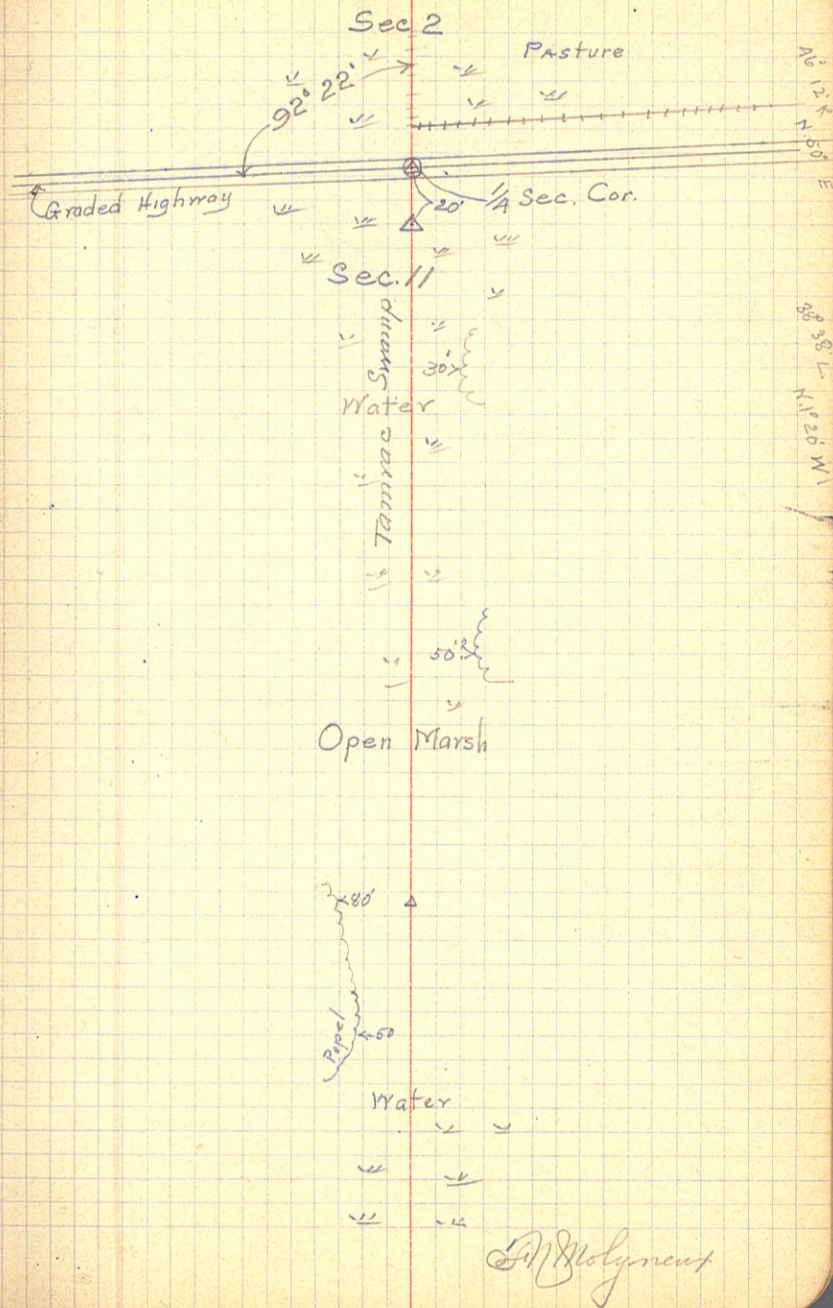 Sec 2
Pasture
92° 22'
Graded Highway
20'
1/4 Sec. Cor.
Sec. 11
30'
Tamarac Swamp
Water
50'
Open Marsh
80'
Popel
50
Water
Molyneux
12' R
N. 50' E
38° 38' L
N. 1° 20' W